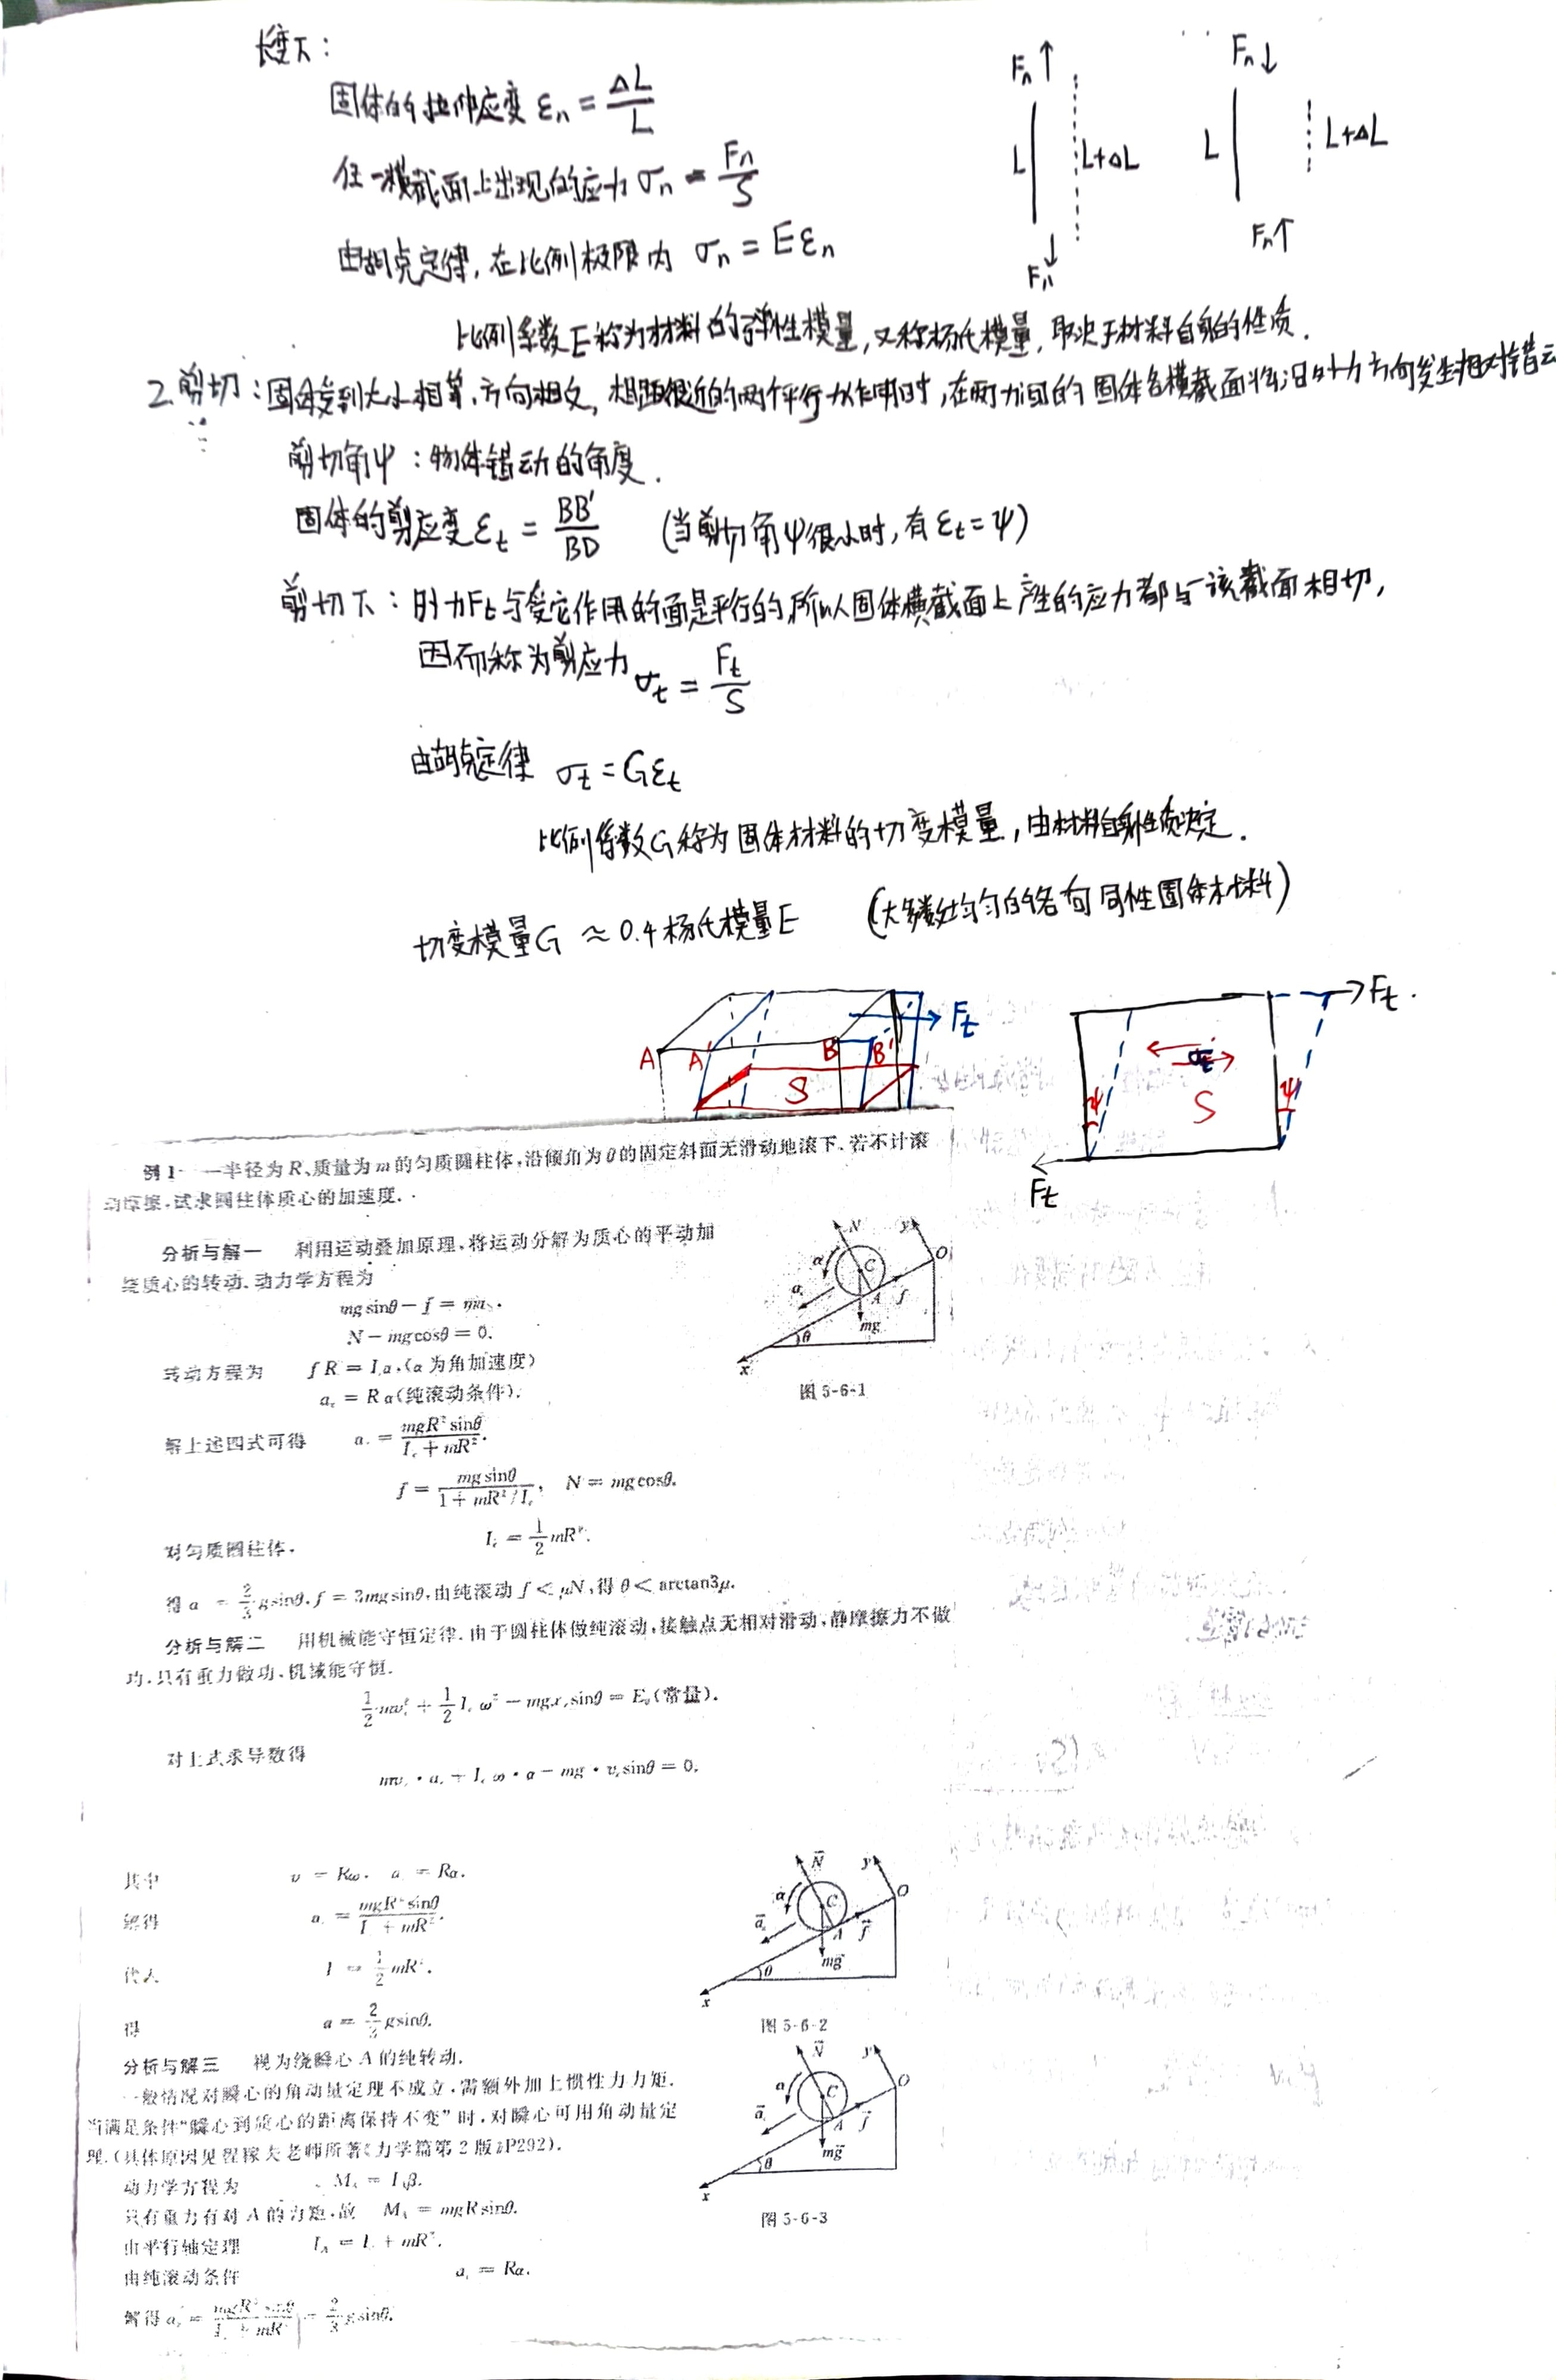 长变下：
固体的拉伸应变 εn = ΔL/L
任一横截面上出现的应力 σn = Fn/S
由胡克定律，在比例极限内 σn = Eεn
Fn↑ L L+ΔL Fn↓
Fn↓ L L+ΔL Fn↑
比例系数E称为材料的弹性模量，又称杨氏模量，取决于材料自身的性质．
2.剪切：固体受到大小相等、方向相反，相距很近的两个平行力作用时，在两力间的固体各横截面将沿外力方向发生相对错动
剪切角ψ：物体错动的角度．
固体的剪应变 εt = BB′/BD （当剪切角ψ很小时，有 εt = ψ）
剪切下：外力Ft与受它作用的面是平行的，所以固体横截面上产生的应力都与该截面相切，
因而称为剪应力 σt = Ft/S
由胡克定律 σt = Gεt
比例系数G称为固体材料的切变模量，由材料自身性质决定．
切变模量G ≈ 0.4杨氏模量E （大多数均匀的各向同性固体材料）
A A′ B B′ S Ft
Ft σt S ψ ψ Ft
例1 一半径为R、质量为m的匀质圆柱体，沿倾角为θ的固定斜面无滑动地滚下．若不计滚
动摩擦，试求圆柱体质心的加速度．
分析与解一 利用运动叠加原理，将运动分解为质心的平动加
绕质心的转动．动力学方程为
mg sinθ − f = mac．
N − mgcosθ = 0．
转动方程为 fR = Icα，（α为角加速度）
ac = Rα（纯滚动条件）．
N y O α C a A f mg θ x
图 5-6-1
解上述四式可得 ac = mgR²sinθ/(Ic + mR²)．
f = mg sinθ/(1 + mR²/Ic)， N = mgcosθ．
对匀质圆柱体， Ic = 1/2 mR²．
得 a = 2/3 gsinθ，f = 3mgsinθ，由纯滚动 f < μN，得 θ < arctan3μ．
分析与解二 用机械能守恒定律．由于圆柱体做纯滚动，接触点无相对滑动，静摩擦力不做
功，只有重力做功，机械能守恒．
1/2 mvc² + 1/2 Ic ω² − mgxc sinθ = E0（常量）．
对上式求导数得
mvc · ac + Ic ω · α − mg · vc sinθ = 0，
其中 v = Rω， a = Rα．
解得 ac = mgR²sinθ/(I + mR²)．
代入 I = 1/2 mR²．
得 a = 2/3 gsinθ．
N y O α C a A f mg θ x
图 5-6-2
分析与解三 视为绕瞬心A的纯转动．
一般情况对瞬心的角动量定理不成立，需额外加上惯性力力矩．
当满足条件“瞬心到质心的距离保持不变”时，对瞬心可用角动量定
理．（具体原因见程稼夫老师所著《力学篇第2版》P292）．
动力学方程为 MA = IAβ．
只有重力有对A的力矩，故 MA = mgRsinθ．
由平行轴定理 IA = Ic + mR²．
由纯滚动条件 ac = Rα．
解得 ac = mgR²sinθ/(Ic + mR²) = 2/3 gsinθ．
N y O α C a A f mg θ x
图 5-6-3